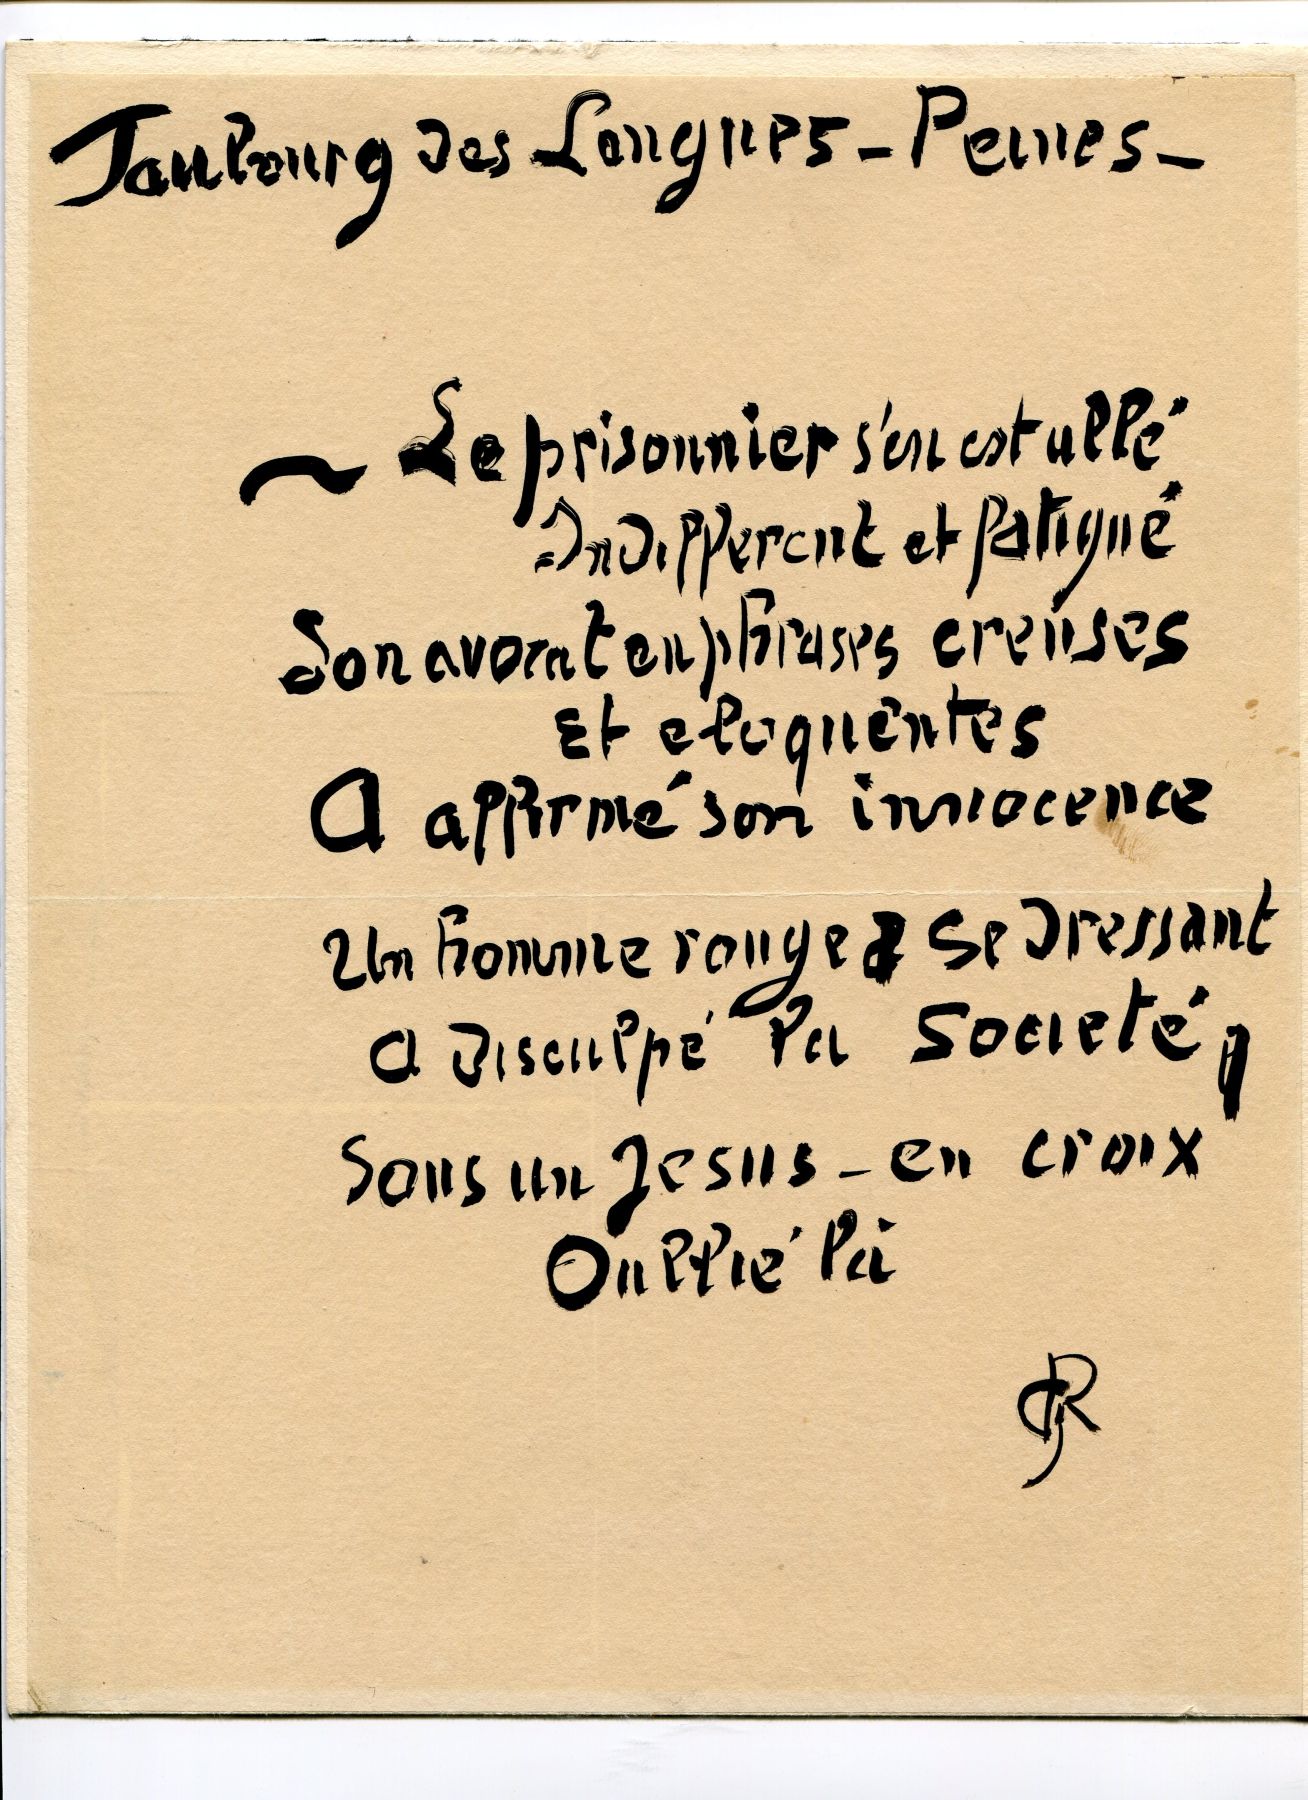 Faubourg des Longues-Peines-
~ Le prisonnier s'en est allé
Indifferent et fatigué
Son avocat en phrases creuses
Et eloquentes
A affirmé son innocence
Un homme rouge se dressant
A disculpé la Societé,
Sous un Jesus-en croix
Oublié là
GR